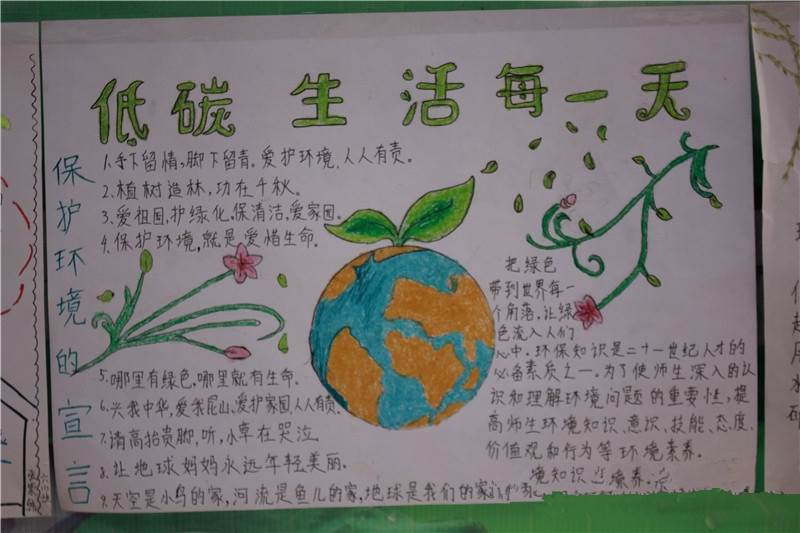 低碳生活每一天
保护环境的宣言
1.手下留情,脚下留青。爱护环境,人人有责。
2.植树造林,功在千秋。
3.爱祖国,护绿化,保清洁,爱家园。
4.保护环境,就是爱惜生命。
5.哪里有绿色,哪里就有生命。
6.兴我中华,爱我昆山,爱护家园,人人有责。
7.请高抬贵脚,听,小草在哭泣
8.让地球妈妈永远年轻美丽。
9.天空是小鸟的家,河流是鱼儿的家,地球是我们的家
把绿色
带到世界每一
个角落,让绿
色流入人们
心中。环保知识是二十一世纪人才的
必备素质之一。为了使师生深入的认
识和理解环境问题的重要性,提
高师生环境知识、意识、技能、态度、
价值观和行为等环境素养。
境知识
素养。